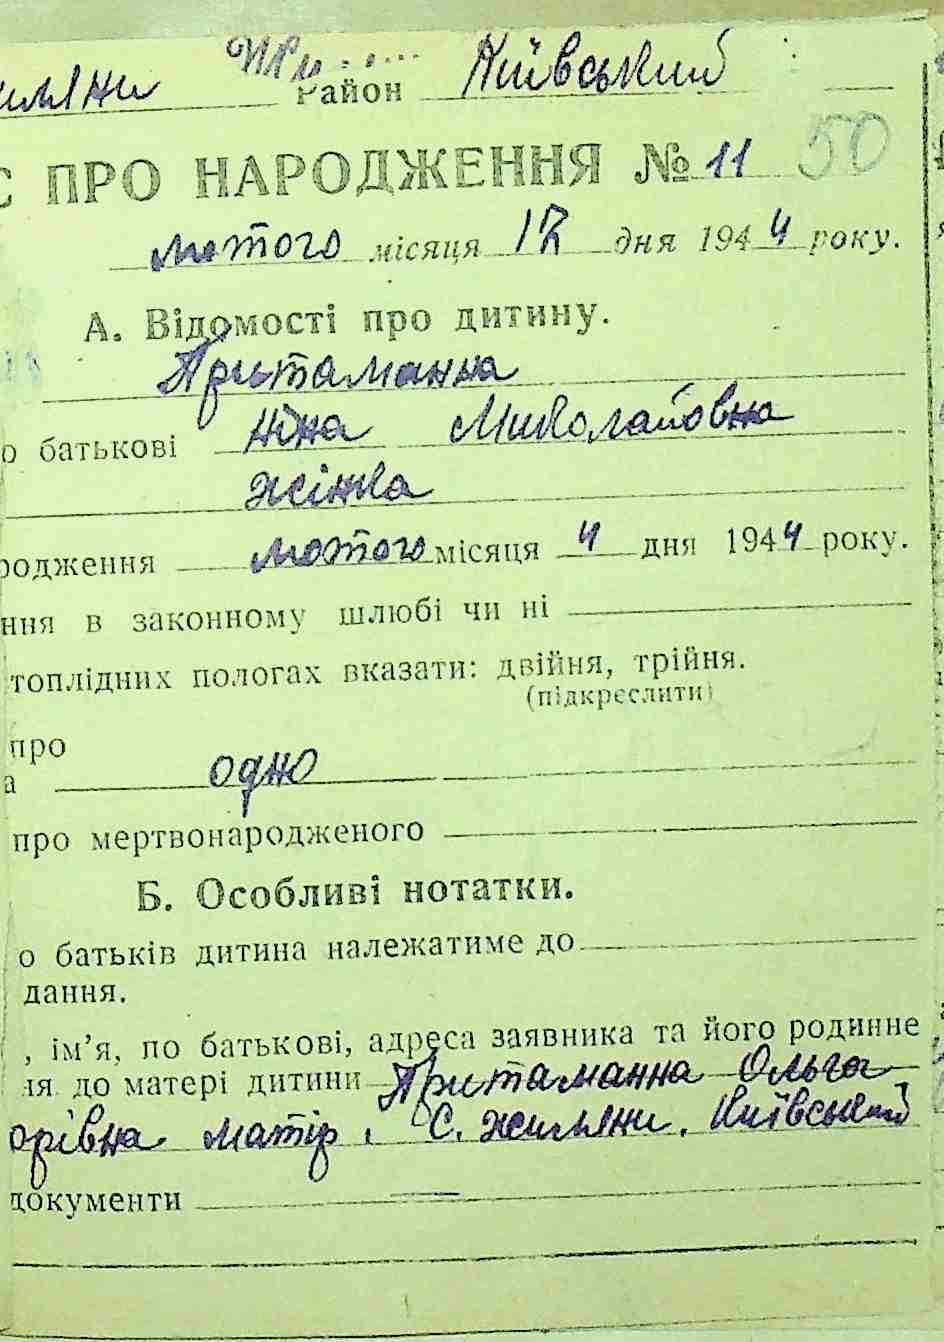 иляни Район Київський
С ПРО НАРОДЖЕННЯ № 11 50
лютого місяця 12 дня 1944 року.
А. Відомості про дитину.
Притаманна
о батькові Ніна Миколаївна
жінка
родження лютого місяця 4 дня 1944 року.
ння в законному шлюбі чи ні
топлідних пологах вказати: двійня, трійня.
(підкреслити)
про
а одно
про мертвонародженого
Б. Особливі нотатки.
о батьків дитина належатиме до
дання.
, ім'я, по батькові, адреса заявника та його родинне
ня до матері дитини Притаманна Ольга
орівна матір. С. Жиляни. Київський
документи —